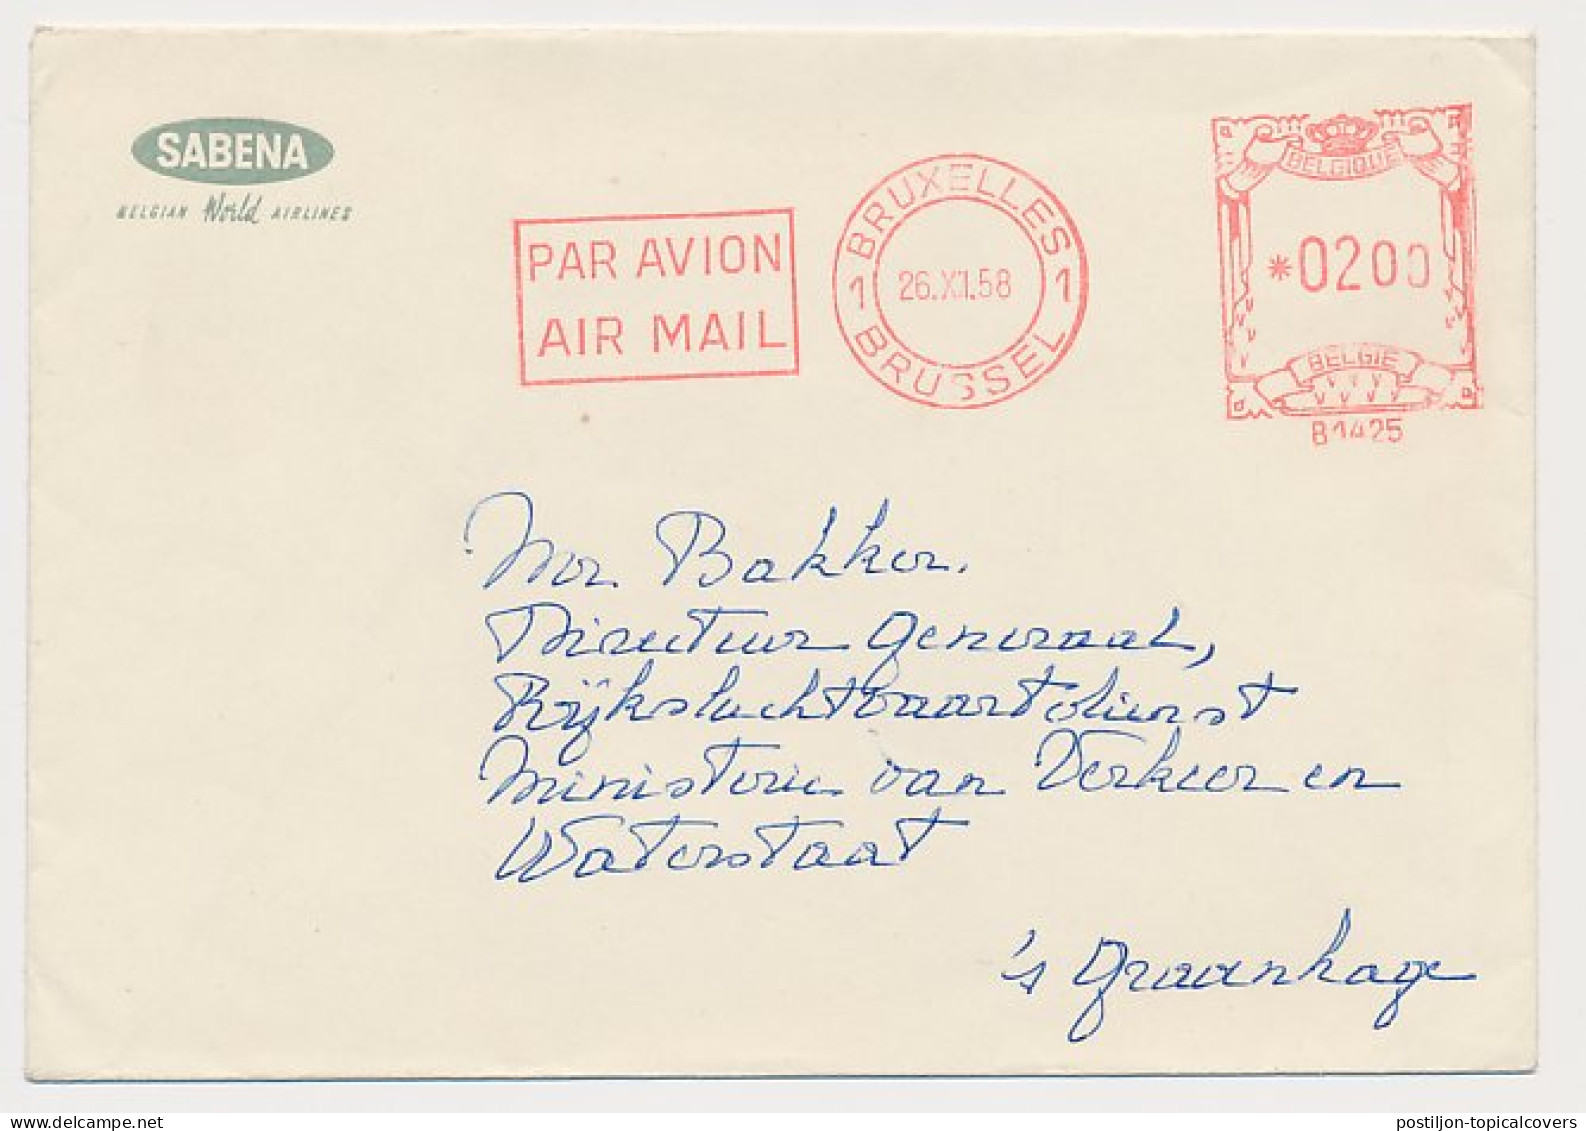 SABENA
BELGIAN World AIRLINES
PAR AVION
AIR MAIL
BRUXELLES
1 26.XI.58 1
BRUSSEL
BELGIQUE
*0200
BELGIE
B1425
Mr Bakker.
Directeur Generaal,
Rijksluchtvaartdienst
Ministerie van Verkeer en
Waterstaat
's Gravenhage
www.delcampe.net
postiljon-topicalcovers